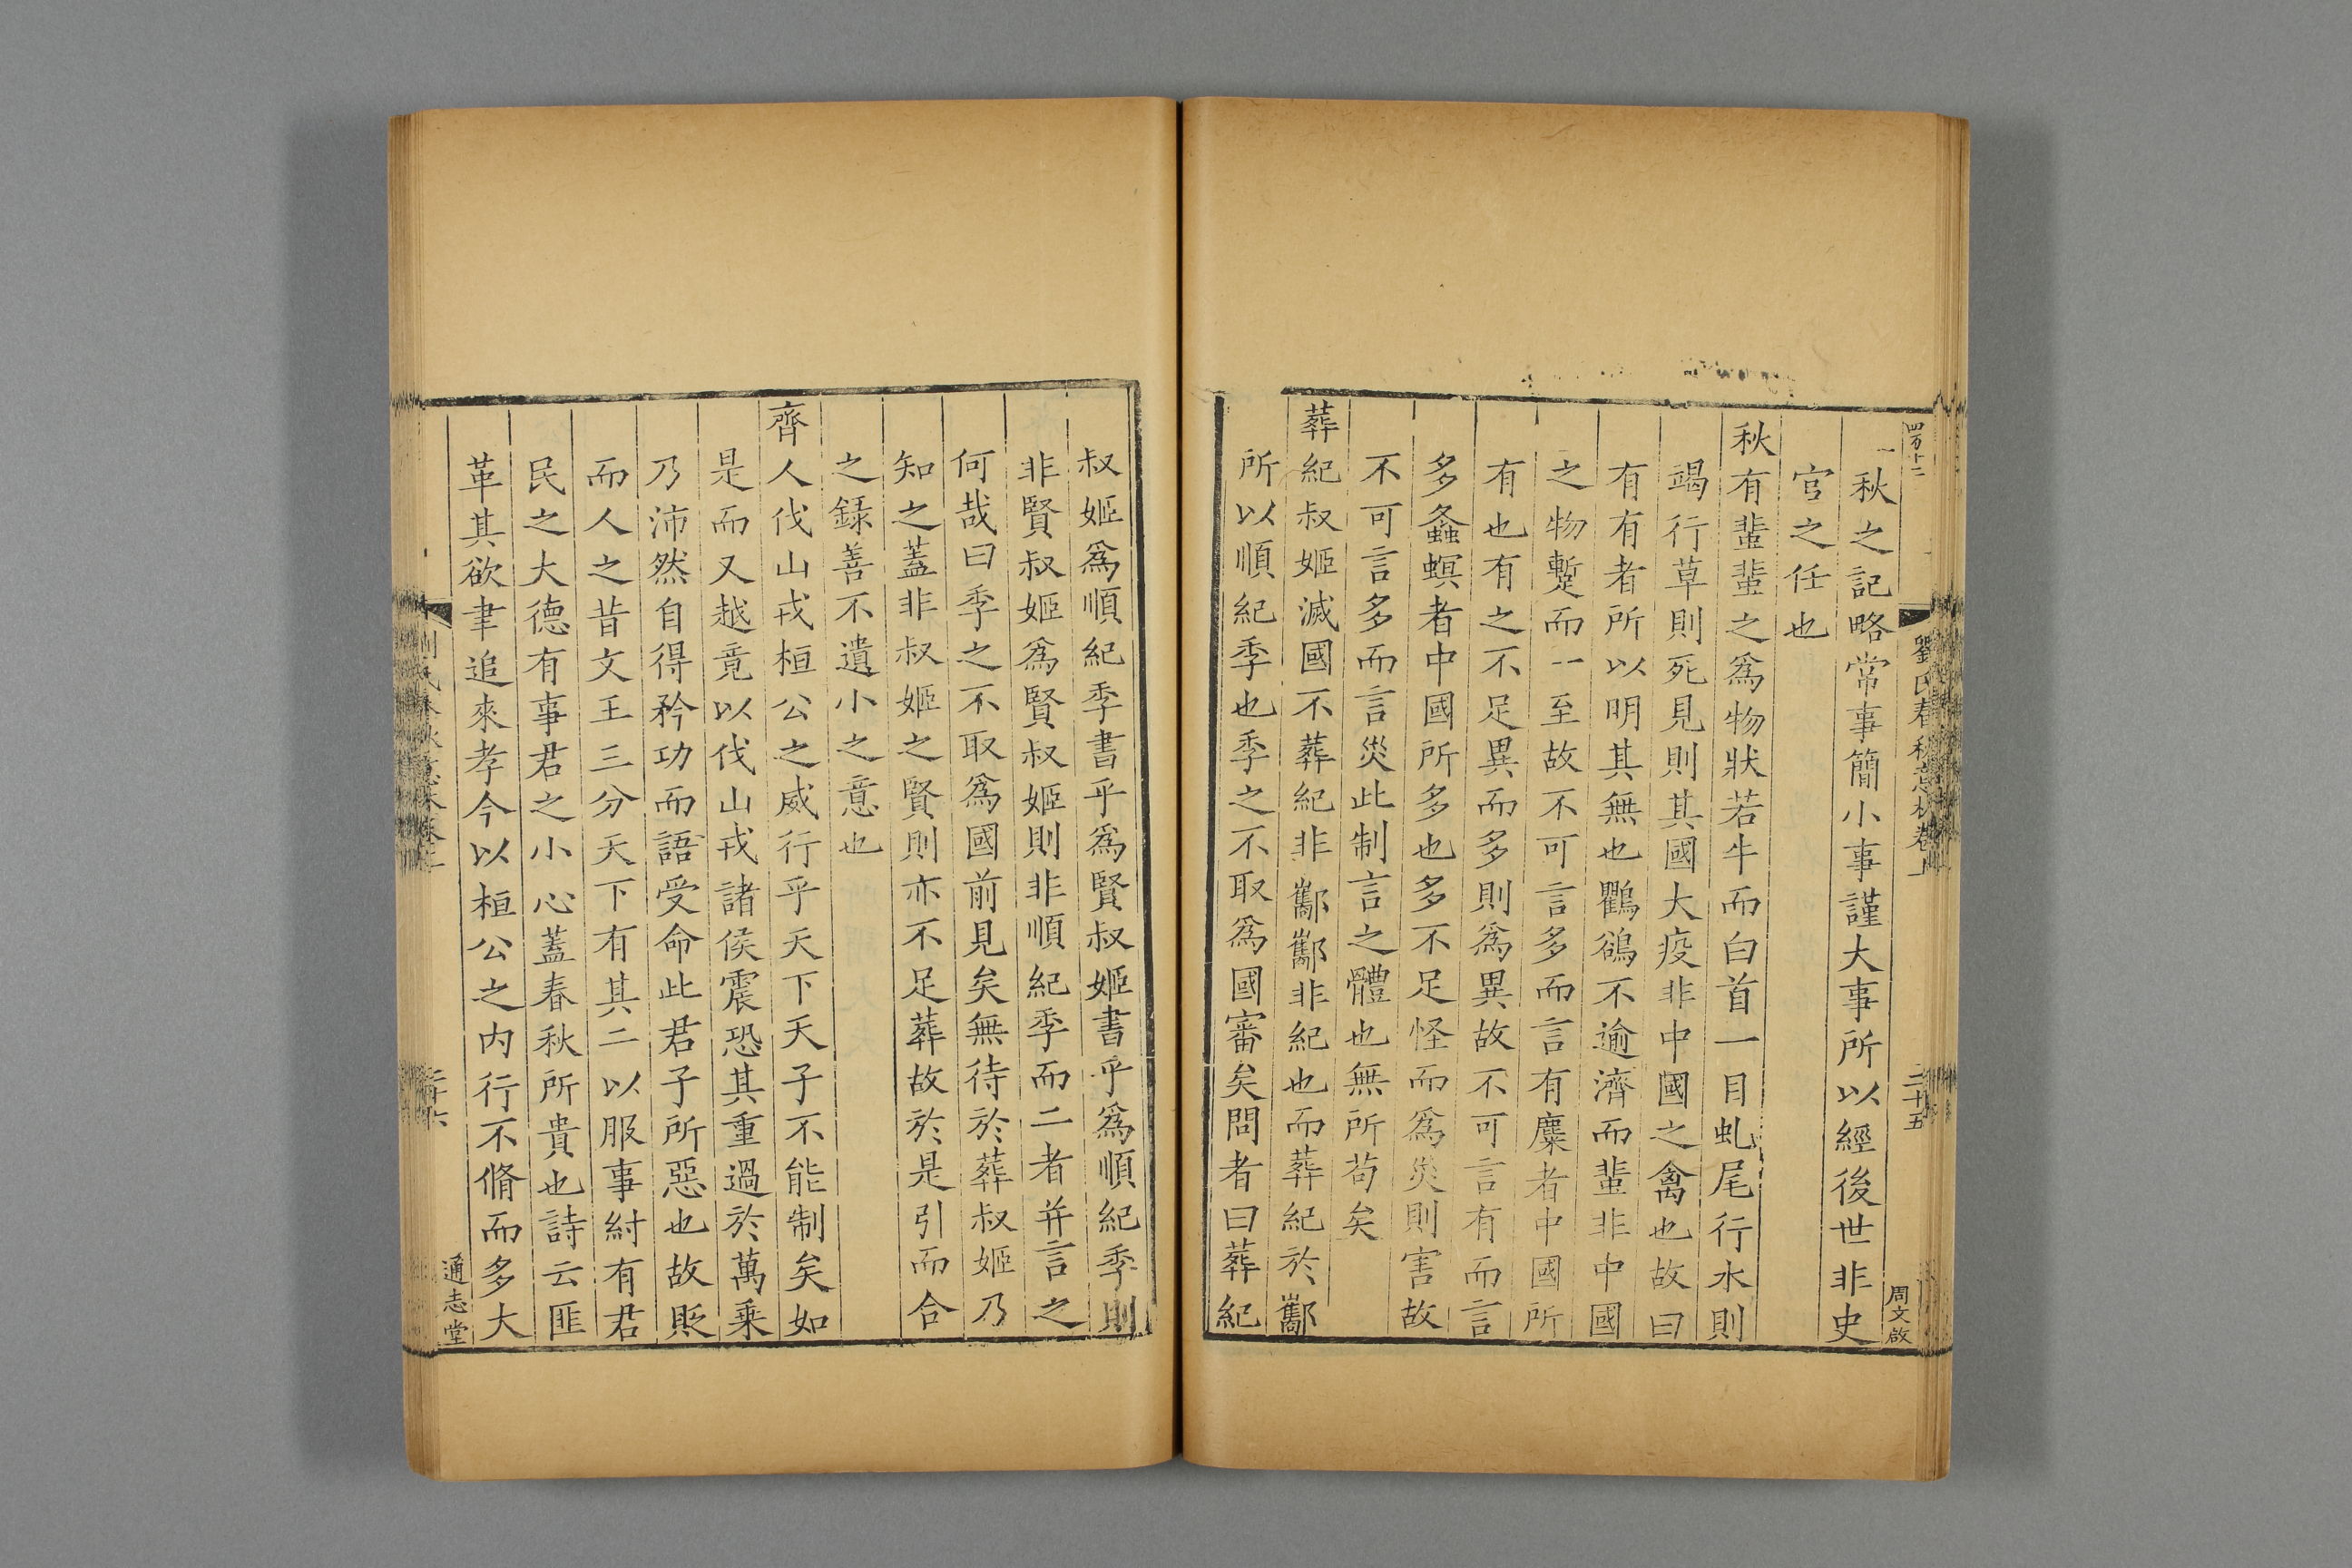 四百十二
劉氏春秋意林卷上
二十五
周文啟
秋之記略常事簡小事謹大事所以經後世非史
官之任也
秋有蜚蜚之爲物狀若牛而白首一目虬尾行水則
竭行草則死見則其國大疫非中國之禽也故曰
有有者所以明其無也鸜鵒不逾濟而蜚非中國
之物蹔而一至故不可言多而言有麋者中國所
有也有之不足異而多則爲異故不可言有而言
多螽螟者中國所多也多不足怪而爲災則害故
不可言多而言災此制言之體也無所苟矣
葬紀叔姬滅國不葬紀非酅酅非紀也而葬紀於酅
所以順紀季也季之不取爲國審矣問者曰葬紀
叔姬爲順紀季書乎爲賢叔姬書乎爲順紀季則
非賢叔姬爲賢叔姬則非順紀季而二者并言之
何哉曰季之不取爲國前見矣無待於葬叔姬乃
知之蓋非叔姬之賢則亦不足葬故於是引而合
之録善不遺小之意也
齊人伐山戎桓公之威行乎天下天子不能制矣如
是而又越竟以伐山戎諸侯震恐其重過於萬乗
乃沛然自得矜功而語受命此君子所惡也故貶
而人之昔文王三分天下有其二以服事紂有君
民之大德有事君之小心蓋春秋所貴也詩云匪
革其欲聿追來孝今以桓公之内行不脩而多大
通志堂